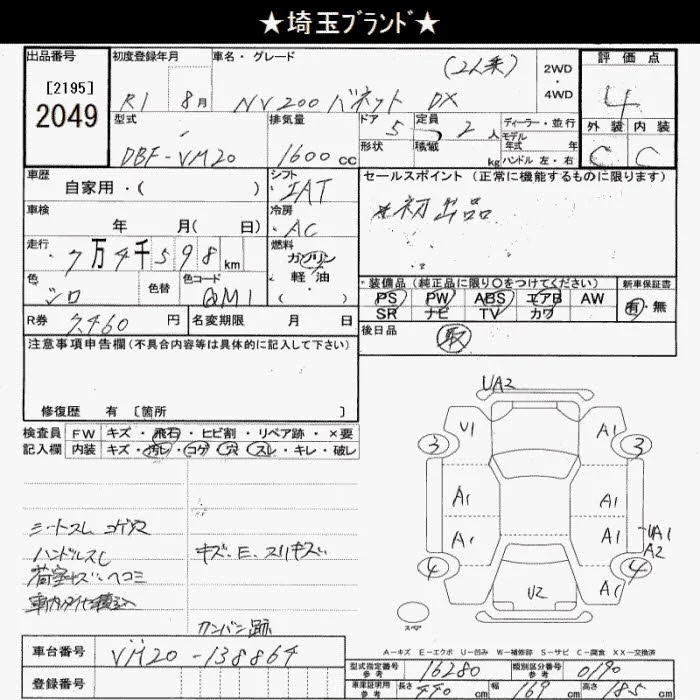 ★埼玉ブランド★
出品番号
[2195]
2049
初度登録年月
R1 8月
車名・グレード
(2人乗)
NV200 バネット DX
2WD
・
4WD
評価点
4
外装 内装
C C
型式
DBF-VM20
排気量
1600cc
ドア
5
定員
2人
形状
積載
kg
ディーラー・並行
モデル
年式 年
ハンドル 左・右
車歴
自家用・( )
シフト
IAT
セールスポイント(正常に機能するものに限ります)
*初出品
車検
年 月( 日)
冷房
AC
走行
7万4千598km
燃料
ガソリン
軽・油
( )
色
シロ
色替
色コード
QM1
・装備品(純正品に限り○をつけてください)
PS PW ABS エアB AW
SR ナビ TV カワ
新車保証書
有・無
R券
7460円
名変期限 月 日
後日品
取
注意事項申告欄(不具合内容等は具体的に記入して下さい)
修復歴 有 [箇所 ]
検査員
記入欄
FW キズ・飛石・ヒビ割・リペア跡・×要
内装 キズ・汚レ・コゲ・穴・スレ・キレ・破レ
シートスレ コゲ穴
ハンドルスレ
荷室キズ・ヘコミ
キズ・E・スリキズ
カンバン跡
UA2
U1
A1
3
3
A1
A1
A1
A1
UA1
A2
4
4
U2
A1
スペア
A-キズ E-エクボ U-凹み W-補修跡 S-サビ C-腐食 XX-交換済
車台番号
VM20-138864
登録番号
型式指定番号
参考
16280
類別区分番号
参考
0190
車庫証明用
参考
長さ 440cm
幅 169cm
高さ 185cm